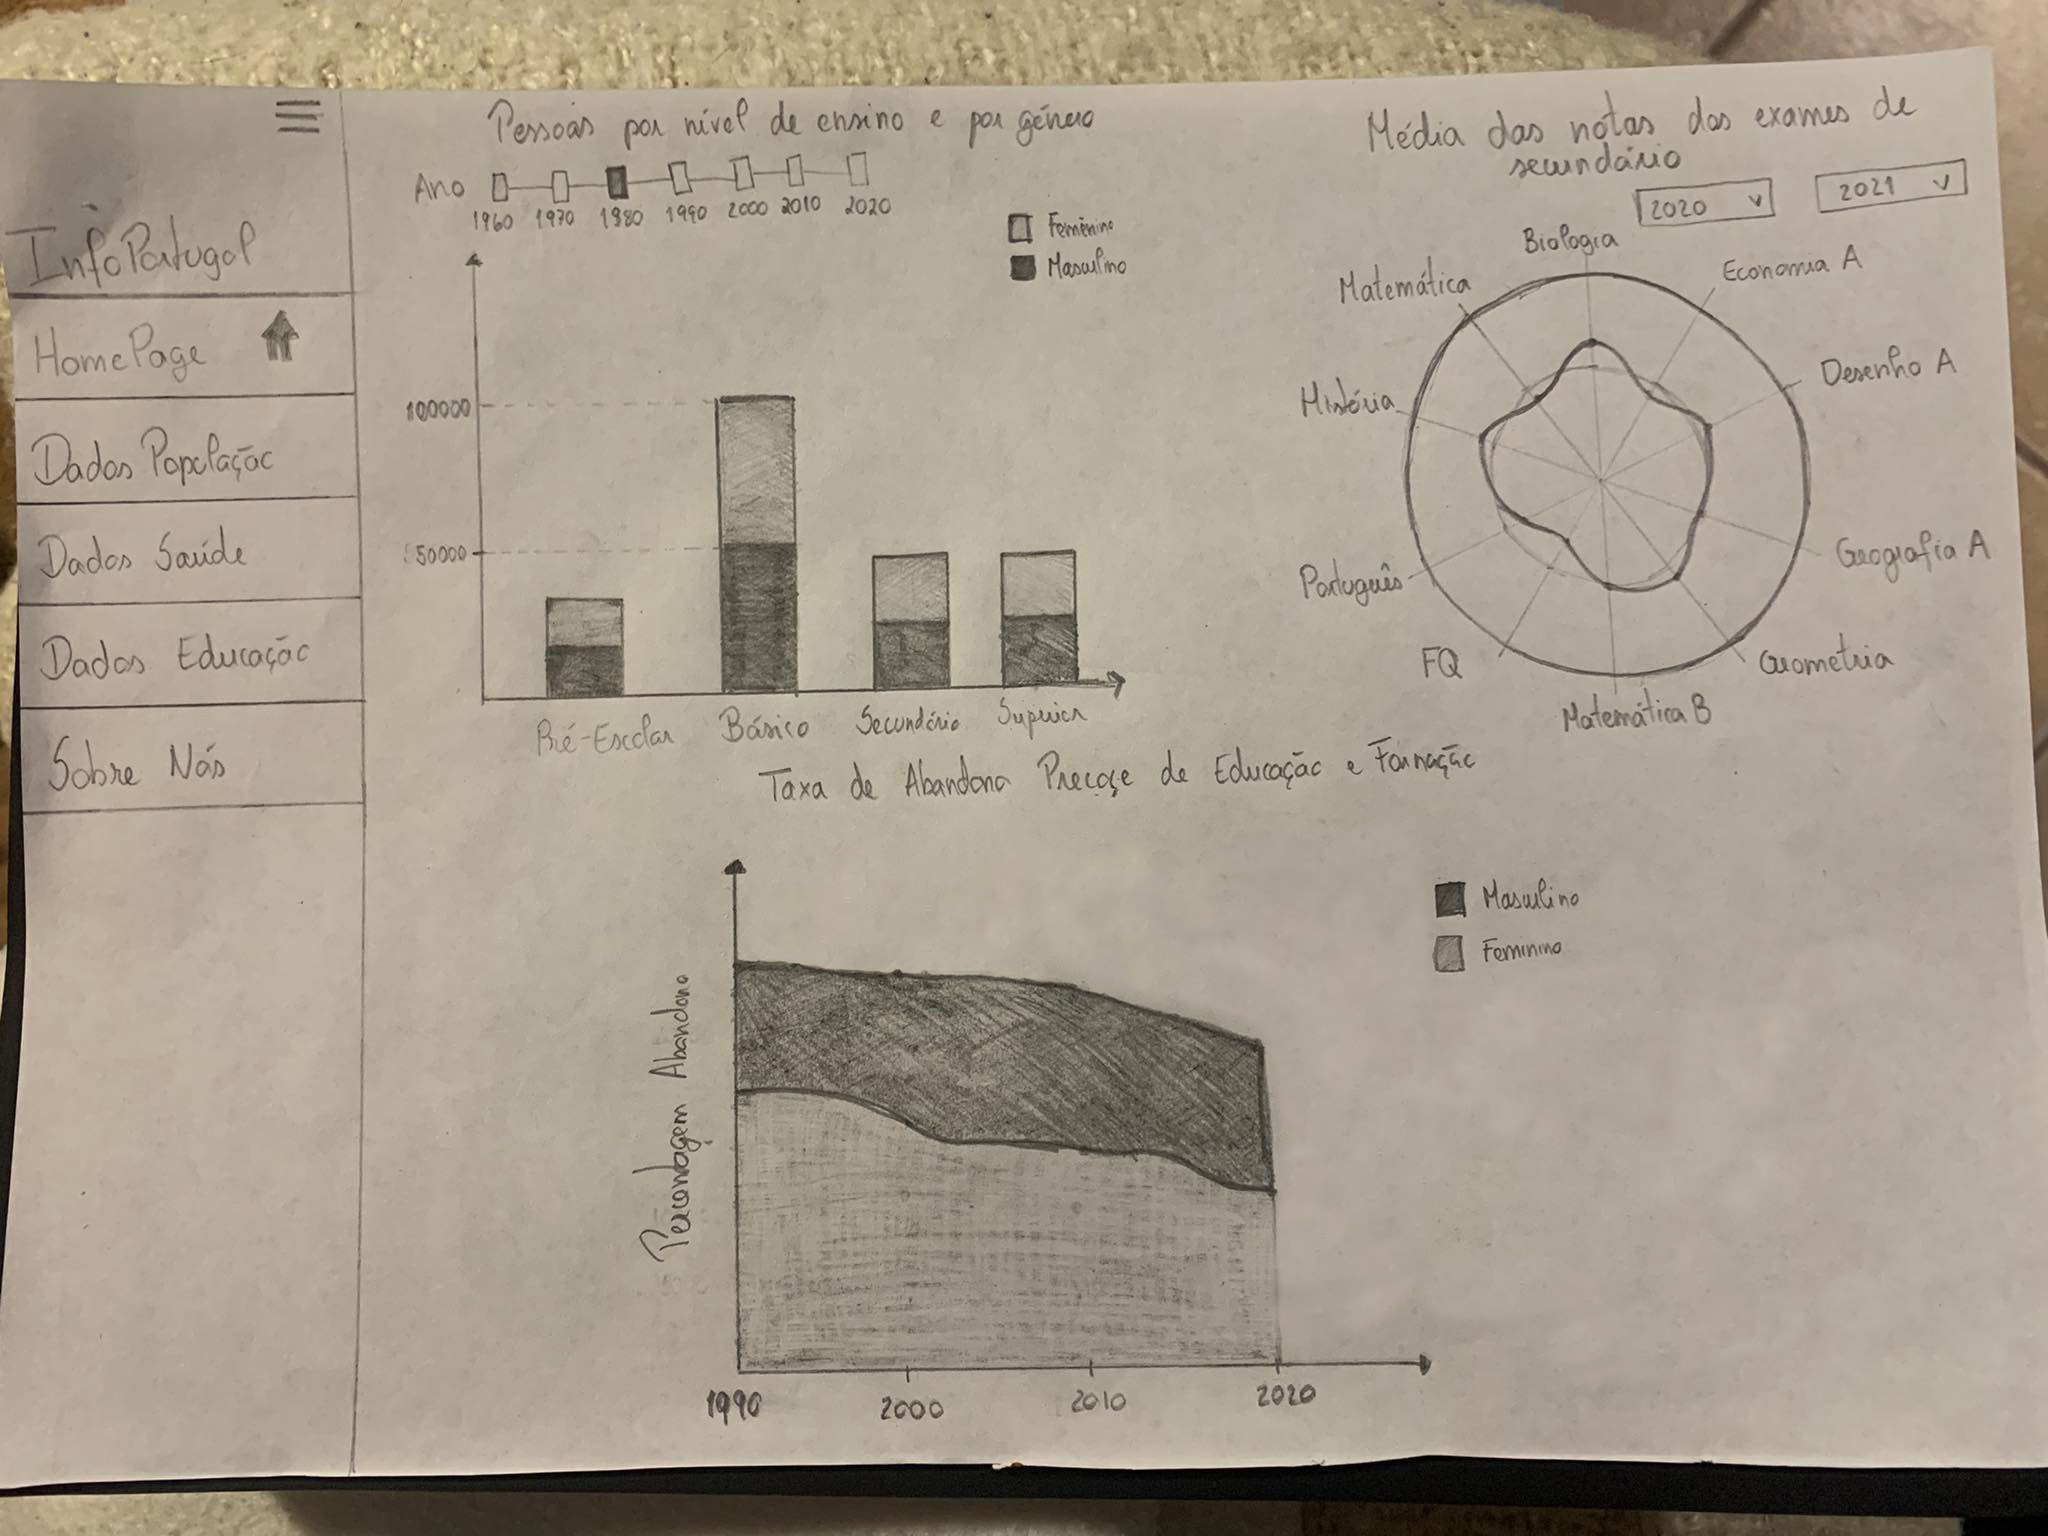 InfoPortugal
HomePage
Dados População
Dados Saúde
Dados Educação
Sobre Nós
Pessoas por nível de ensino e por género
Ano
1960 1970 1980 1990 2000 2010 2020
Femenino
Masculino
100000
50000
Pré-Escolar Básico Secundário Superior
Média das notas dos exames de
secundário
2020 2021
Biologia
Economia A
Matemática
Desenho A
História
Geografia A
Português
Geometria
FQ
Matemática B
Taxa de Abandono Precoçe de Educação e Formação
Masculino
Feminino
Percentagem Abandono
1990 2000 2010 2020